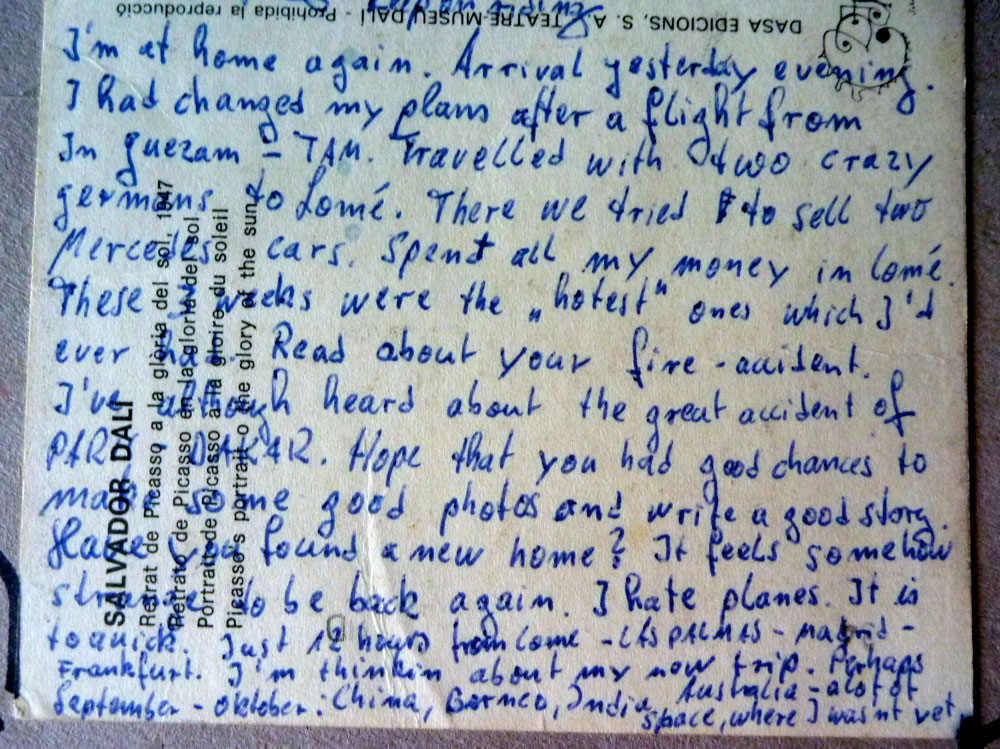 DASA EDICIONS, S. A. TEATRE-MUSEU DALÍ - Prohibida la reproducció
I'm at home again. Arrival yesterday evening.
I had changed my plans after a flight from
In guezam - TAM. Travelled with two crazy
germans to Lomé. There we tried to sell two
Mercedes cars. Spent all my money in lomé.
These weeks were the „hotest" ones which I'd
ever had. Read about your fire-accident.
I've although heard about the great accident of
PARIS DAKAR. Hope that you had good chances to
make some good photos and write a good story.
Have you found a new home? It feels somehow
strange to be back again. I hate planes. It is
to quick. Just 12 hours from Lome - LAS PALMAS - Madrid -
Frankfurt. I'm thinkin about my now trip. Perhaps
September - oktober: China, Borneo, India, Australia - a lot of
space, where I wasnt yet.
SALVADOR DALÍ
Retrat de Picasso a la glòria del sol, 1947
Retrato de Picasso en la gloria del sol
Portrait de Picasso à la gloire du soleil
Picasso's portrait o the glory of the sun